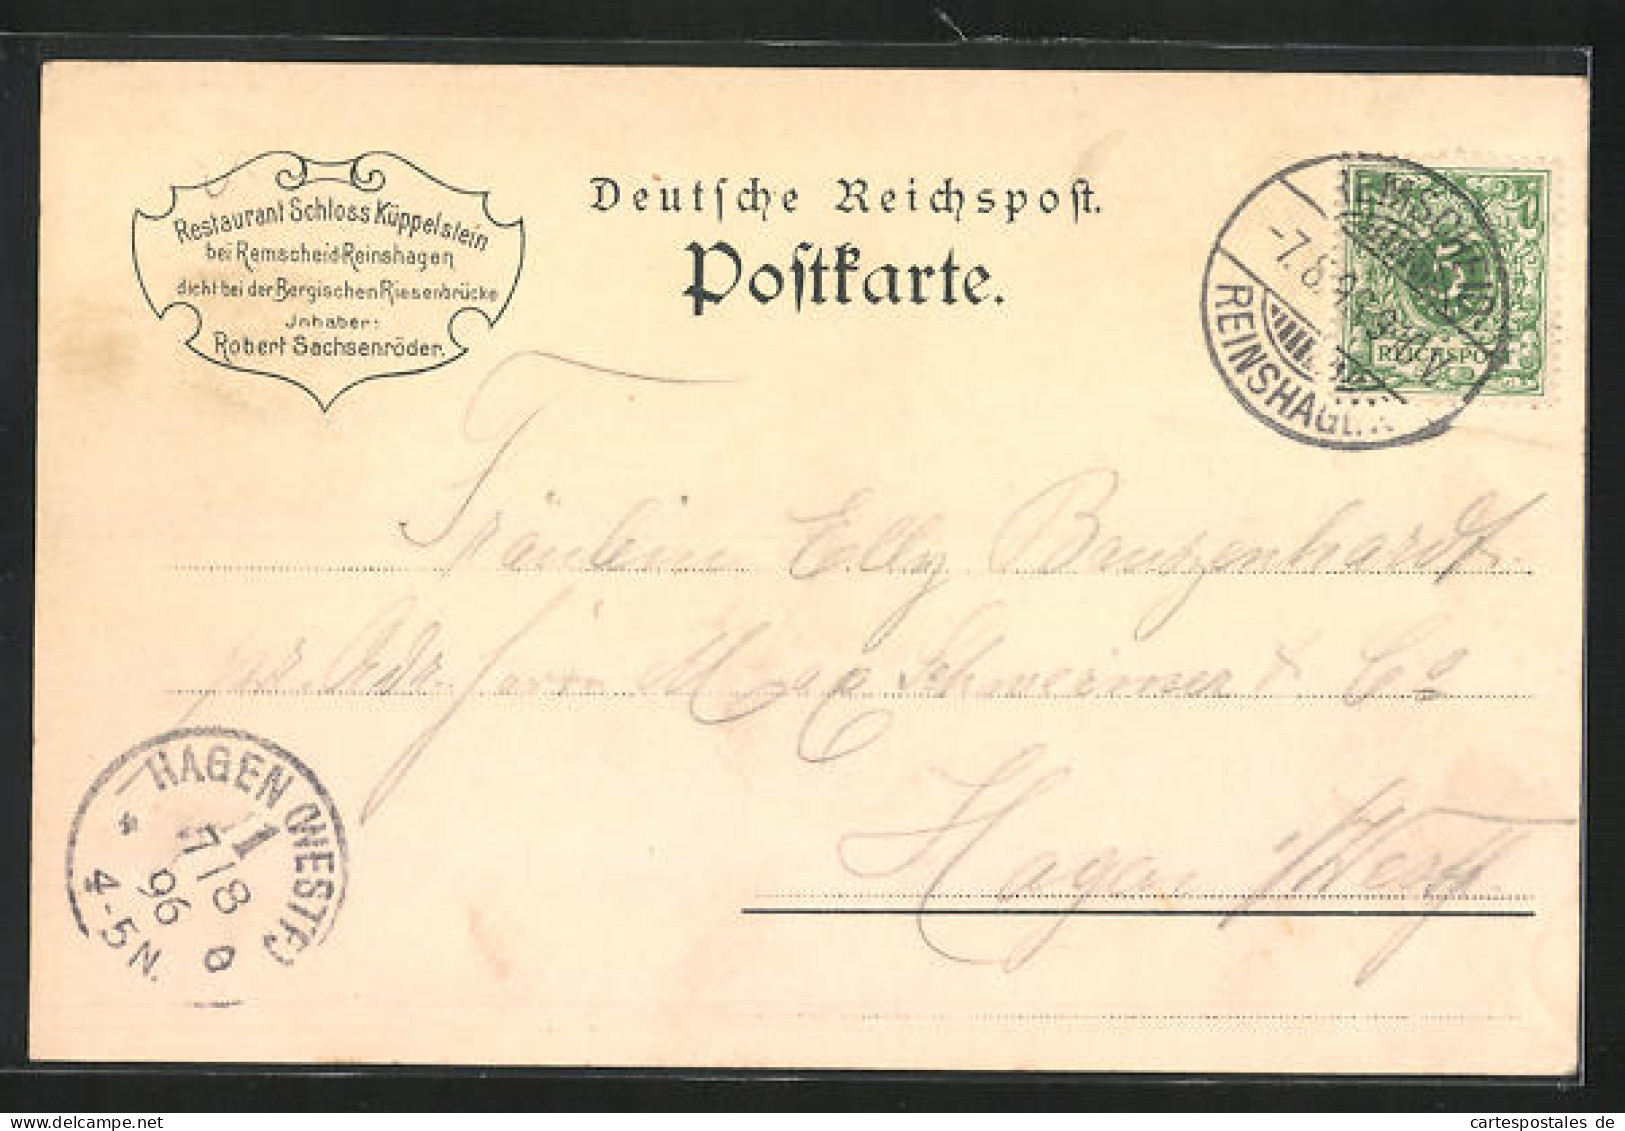 Restaurant Schloss Küppelstein
bei Remscheid-Reinshagen
dicht bei der Bergischen Riesenbrücke
Inhaber:
Robert Sachsenröder.
Deutsche Reichspost.
Postkarte.
REMSCHEID
-7.8.96
REINSHAGEN
5
REICHSPOST
Fräulein Elly
pr. Adr. Herrn Max & Co
Hagen i/Westf.
HAGEN (WESTF.)
1
7/8
96
4-5N.
cartespostales de